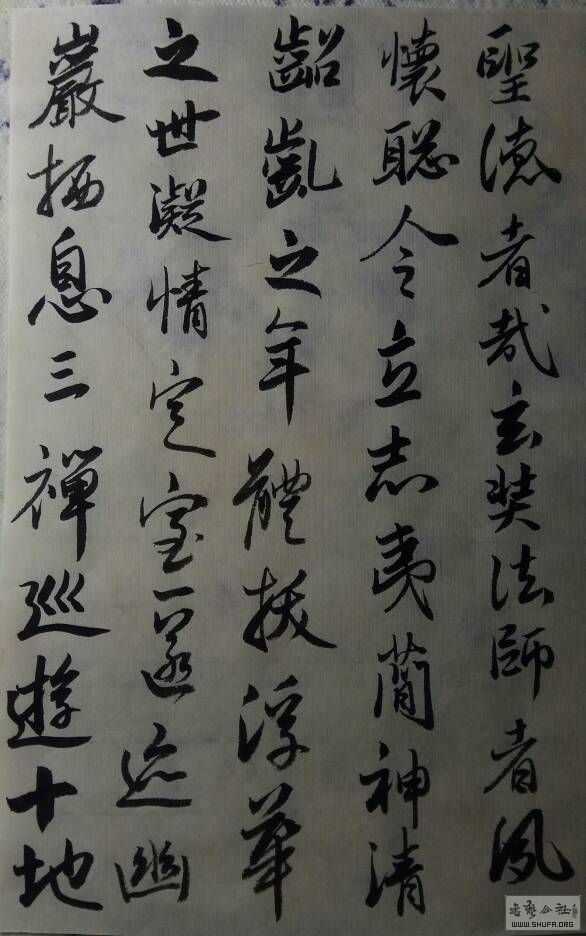 聖德者哉玄奘法師者夙
懷聡令立志夷簡神清
齠齓之年體拔浮華
之世凝情定室匿迹幽
巖栖息三禪巡遊十地
书艺公社
WWW.SHUFA.ORG